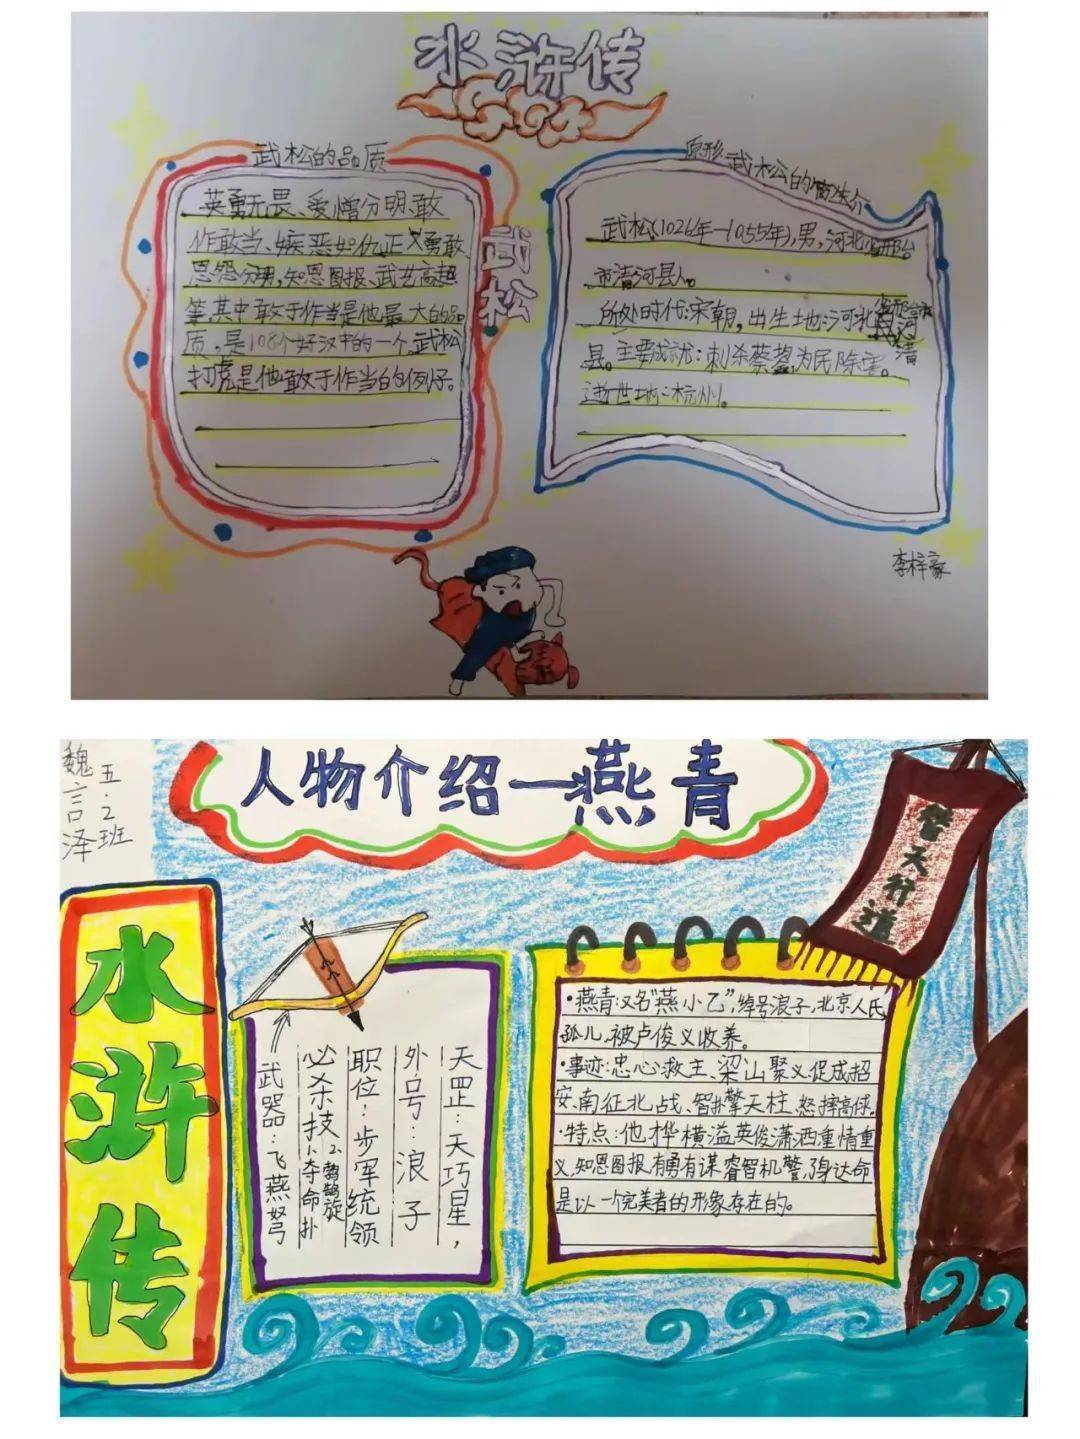 水浒传
武松的品质
英勇无畏、爱憎分明、敢
作敢当、嫉恶如仇、正义勇敢
恩怨分明,知恩图报、武艺高超
等,其中敢于作当是他最大的品
质,是108个好汉中的一个。武松
打虎是他敢于作当的例仔。
武松
原形武松的简介
武松(1026年—1055年),男,河北
市清河县人。
所处时代:宋朝,出生地:河北
清河
县。主要成就:刺杀蔡鋆为民除害。
逝世地:杭州。
李梓豪
五.2班
魏言泽
人物介绍—燕青
替天行道
水浒传
天罡:天巧星,
外号:浪子
职位:步军统领
必杀技 1.夺命扑
2.鹁鸽旋
武器:飞燕弩
·燕青:又名“燕小乙”,绰号浪子,北京人氏
孤儿、被卢俊义收养。
·事迹:忠心救主、梁山聚义、促成招
安、南征北战、智扑擎天柱、怒摔高俅。
·特点:他桦横溢英俊潇洒重情重
义、知恩图报、有勇有谋、睿智机警,了身达命
是以一个完美者的形象存在的。